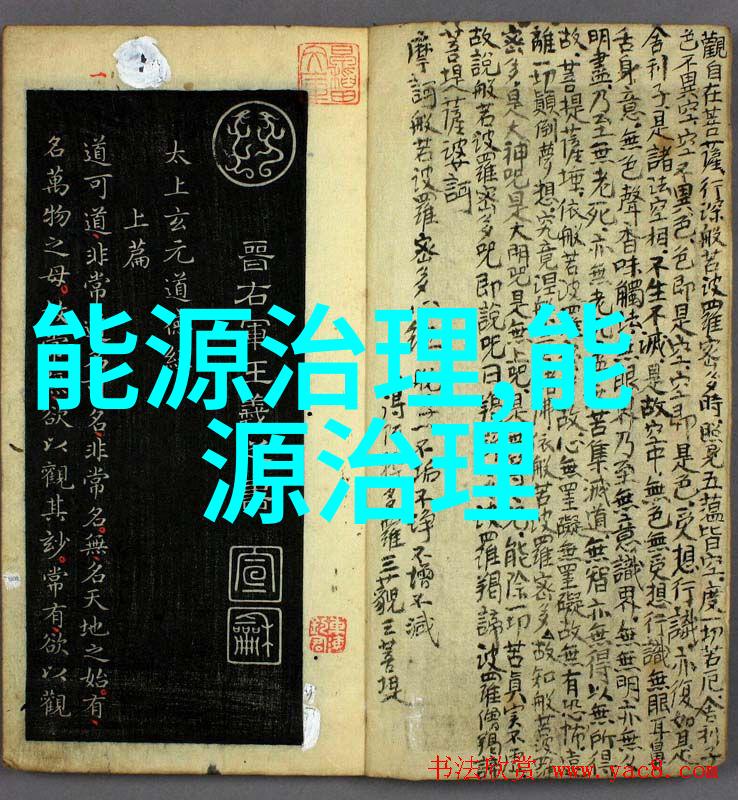 能源治理,能
源治理
觀自在菩薩行深般若波羅密多時照見五蘊皆空度一切苦厄舍利子
色不異空空不異色色即是空空即是色受想行識亦復如是
舍利子是諸法空相不生不滅是故空中無色無受想行識無眼耳鼻
舌身意無色聲香味觸法無眼界乃至無意識界無無明亦無
明盡乃至無老死亦無老死苦集滅道無智亦無得以無所得
故菩提薩埵依般若波羅故心無罣礙無罣礙故無有恐怖遠
離一切顛倒夢想究竟涅佛依般若波羅密多故知般若波
密多是大神咒是大明咒是無上咒是無能除一切苦真實不
故說般若波羅密多咒即說咒曰揭波羅揭諦波羅僧揭諦
菩提薩婆訶
不垢不淨不增不減
得多羅三藐三菩提
摩訶般若波羅密多
晉右軍王羲
宣
龢
太上玄元道
上篇
道可道非常名非常名無名天地之始有
名萬物之母欲以觀其妙常有欲以觀
书法欣赏 www.yac8.com